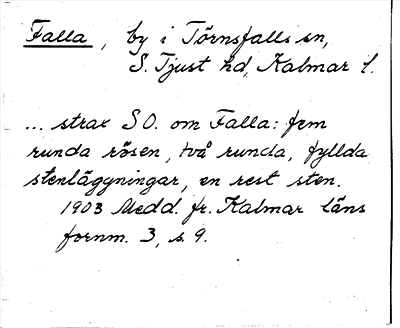 Falla, by i Törnsfalls sn,
S. Tjust hd, Kalmar l.
... strax SO. om Falla: fem
runda rösen, två runda, fyllda
stenläggningar, en rest sten.
1903 Medd. fr. Kalmar läns
fornm. 3, s. 9.